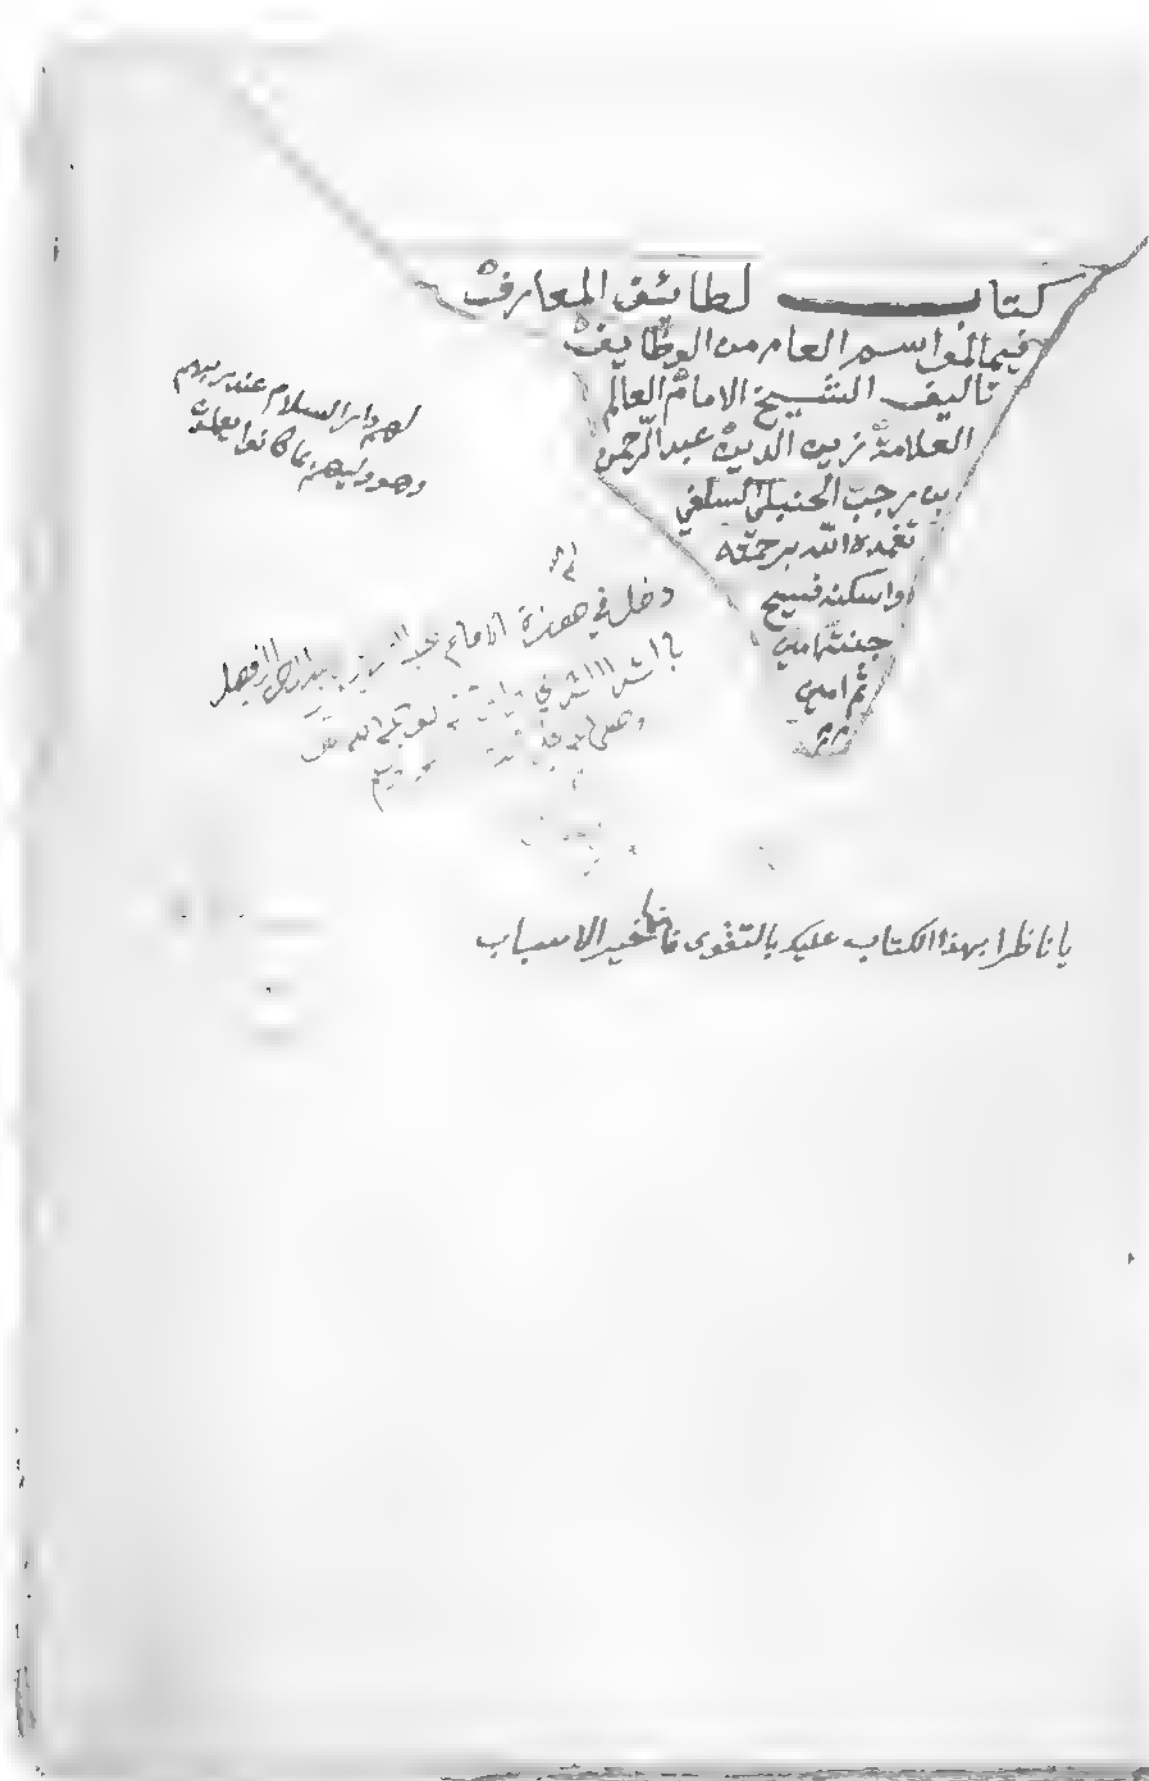 كتاب لطائف المعارف
فيما لمواسم العام من الوظايف
تاليف الشيخ الامام العالم
العلامة زين الدين عبد الرحمن
بن رجب الحنبلي السلفي
تغمده الله برحمته
واسكنه فسيح
جنته امين
ثم امين
لهم دار السلام عند ربهم
وهو وليهم بما كانوا يعملون
دخل في حوزة الامام
يا ناظرا بهذا الكتاب عليك بالتقوى فانها خير الاسباب